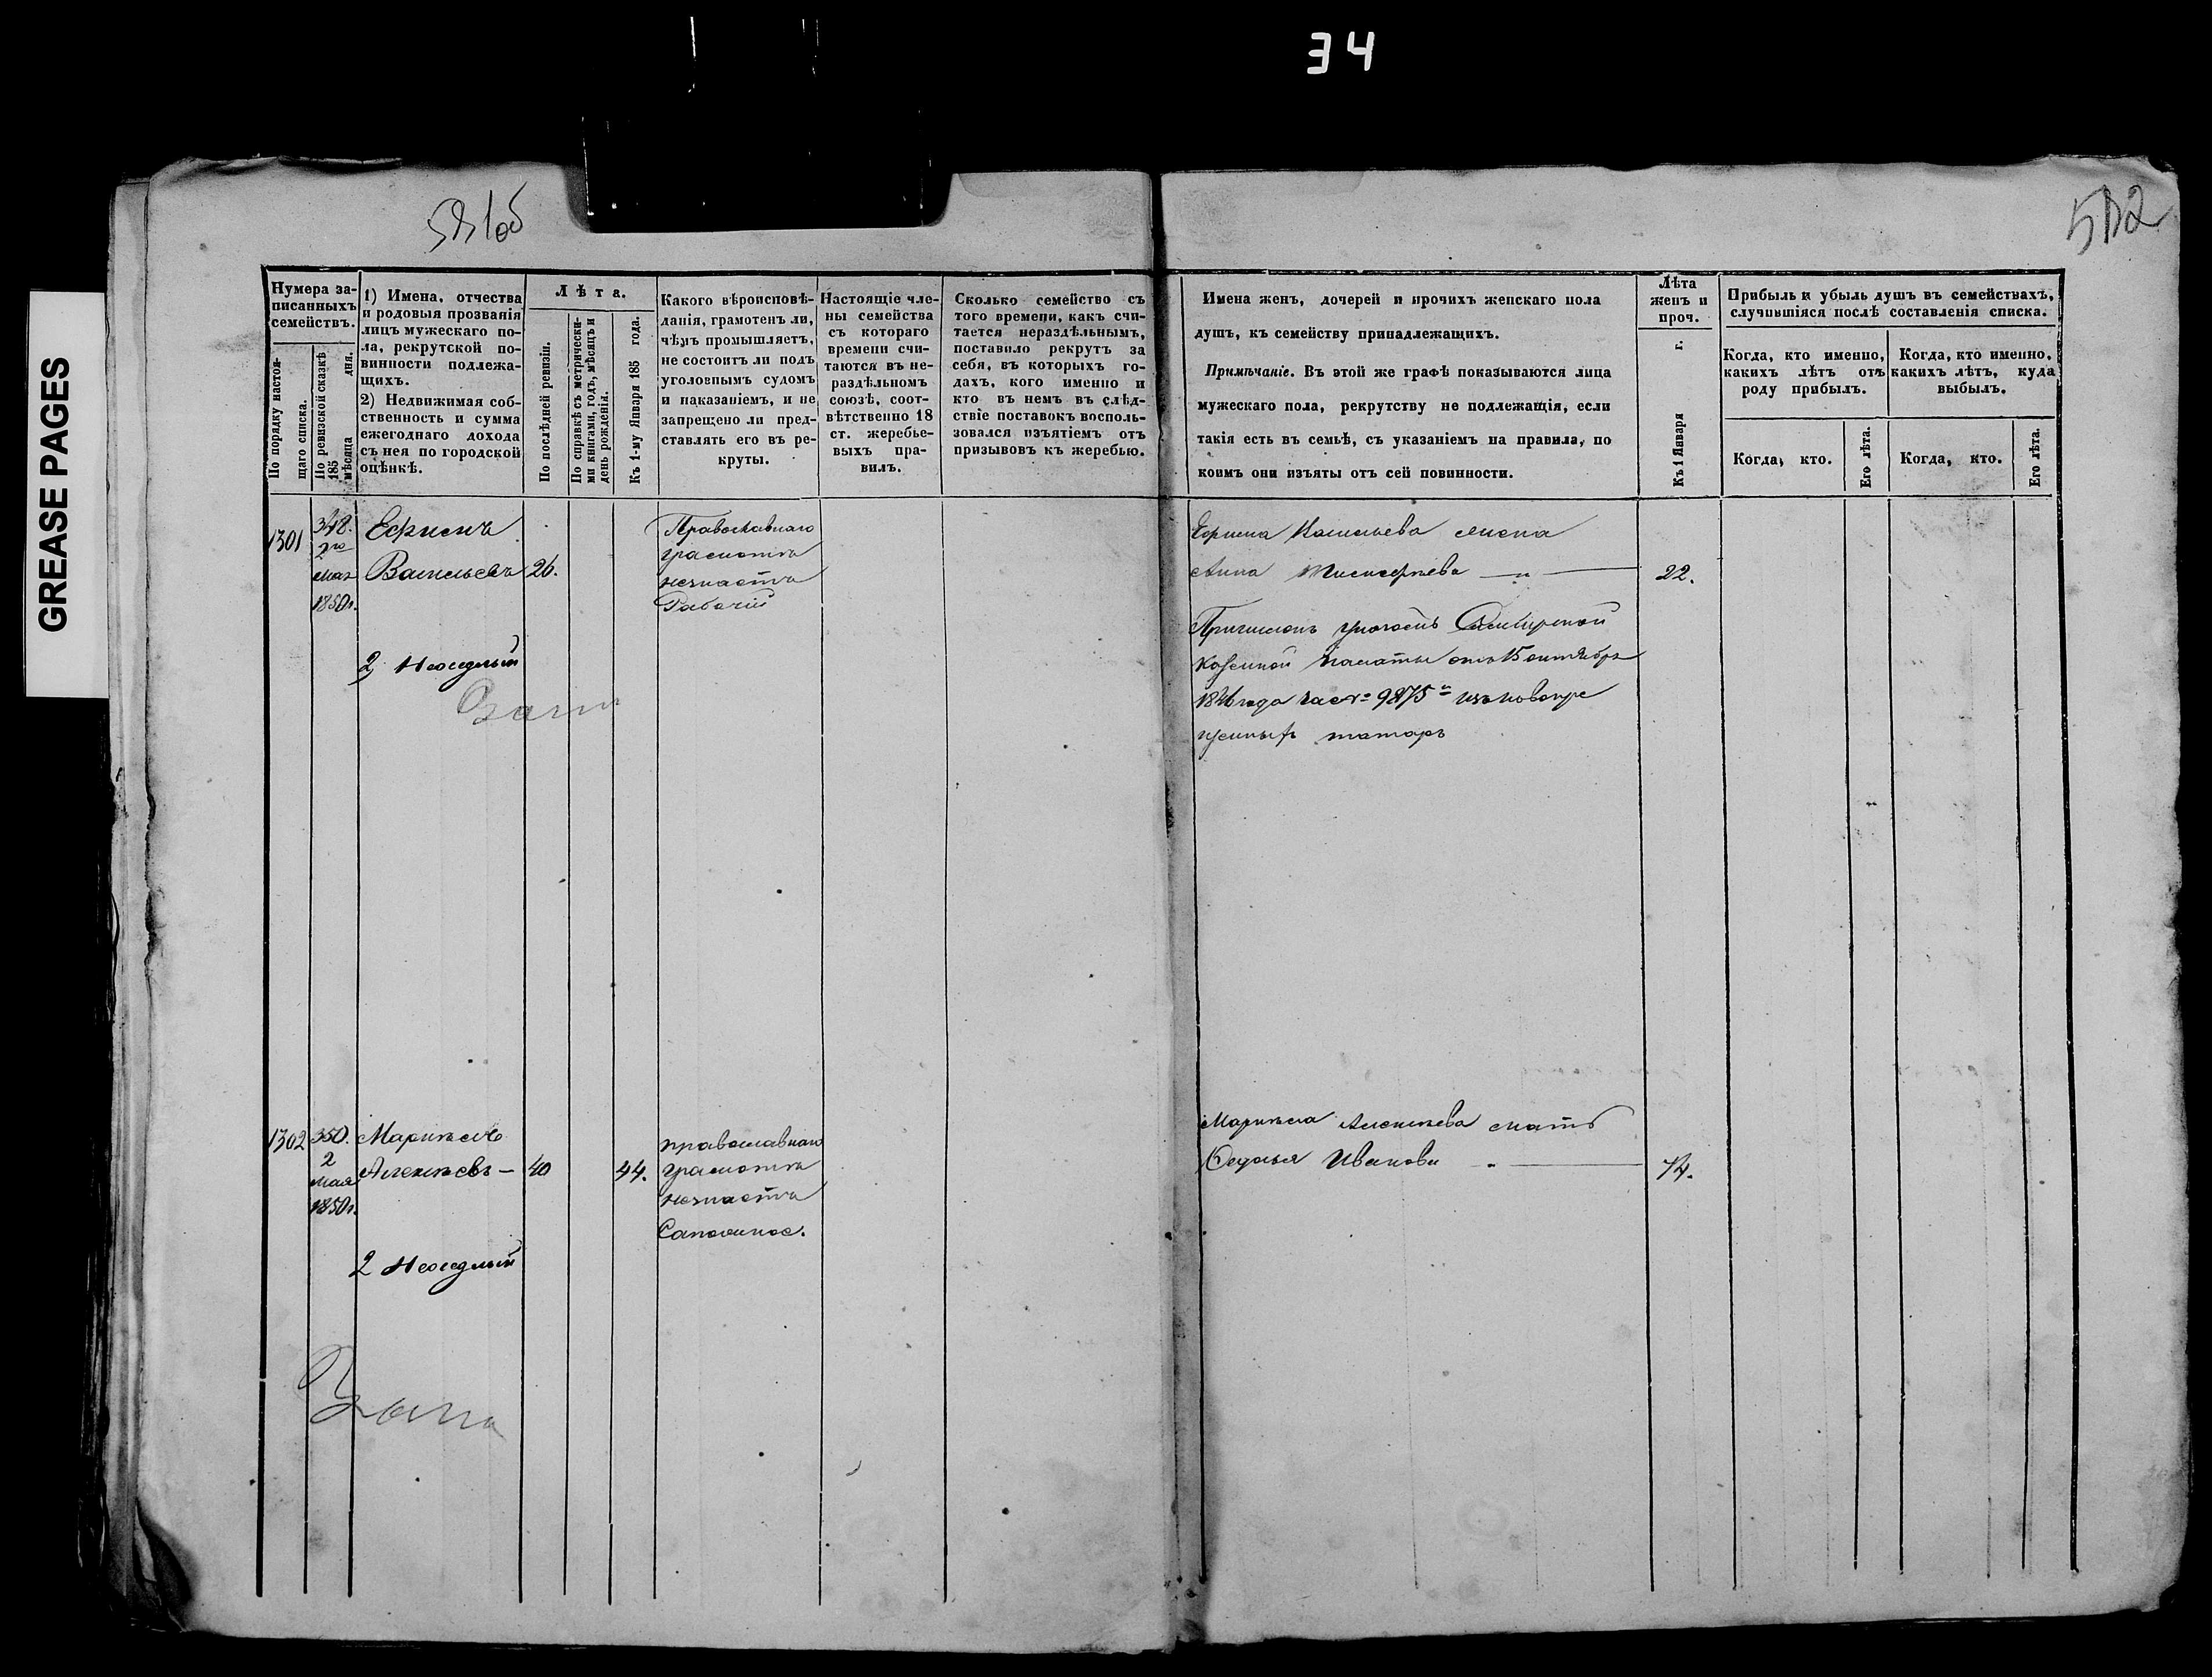 34
GREASE PAGES
502
Нумера за-
писанныхъ
семействъ.
По порядку настоя-
щаго списка.
По ревизской сказкѣ
185
мѣсяца дня.
1) Имена, отчества
и родовыя прозванія
лицъ мужескаго по-
ла, рекрутской по-
винности подлежа-
щихъ.
2) Недвижимая соб-
ственность и сумма
ежегоднаго дохода
съ нея по городской
оцѣнкѣ.
Лѣта.
По послѣдней ревизіи.
По справкѣ съ метрически-
ми книгами, годъ, мѣсяцъ и
день рожденія.
Къ 1-му Января 185 года.
Какого вѣроисповѣ-
данія, грамотенъ ли,
чѣмъ промышляетъ,
не состоитъ ли подъ
уголовнымъ судомъ
и наказаніемъ, и не
запрещено ли пред-
ставлять его въ ре-
круты.
Настоящіе чле-
ны семейства
съ котораго
времени счи-
таются въ не-
раздѣльномъ
союзѣ, соот-
вѣтственно 18
ст. жеребье-
выхъ пра-
вилъ.
Сколько семейство съ
того времени, какъ счи-
тается нераздѣльнымъ,
поставило рекрутъ за
себя, въ которыхъ го-
дахъ, кого именно и
кто въ немъ въ слѣд-
ствіе поставокъ восполь-
зовался изъятіемъ отъ
призывовъ къ жеребью.
Имена женъ, дочерей и прочихъ женскаго пола
душъ, къ семейству принадлежащихъ.
Примѣчаніе. Въ этой же графѣ показываются лица
мужескаго пола, рекрутству не подлежащія, если
такія есть въ семьѣ, съ указаніемъ на правила, по
коимъ они изъяты отъ сей повинности.
Лѣта
женъ и
проч.
Къ 1 Января г.
Прибыль и убыль душъ въ семействахъ,
случившіяся послѣ составленія списка.
Когда, кто именно,
какихъ лѣтъ отъ
роду прибылъ.
Когда, кто именно,
какихъ лѣтъ, куда
выбылъ.
Когда, кто.
Его лѣта.
Когда, кто.
Его лѣта.
1301
348.
2го
мая
1850г.
Ефимъ
Васильевъ
26.
Православнаго
грамоты
незнаетъ
Рабочій
2, Неоседлый
Ефима Васильева жена
Анна
22.
Причисленъ указомъ Симбирской
Казенной палаты отъ 15 октября
1846 года за № 9875м изъ новокре
щенныхъ татаръ
1302
350.
2
мая
1850г.
Алексѣевъ
40
44.
православнаго
грамоты
незнаетъ
2 Неоседлый
Алексѣева мать
Иванова
74.